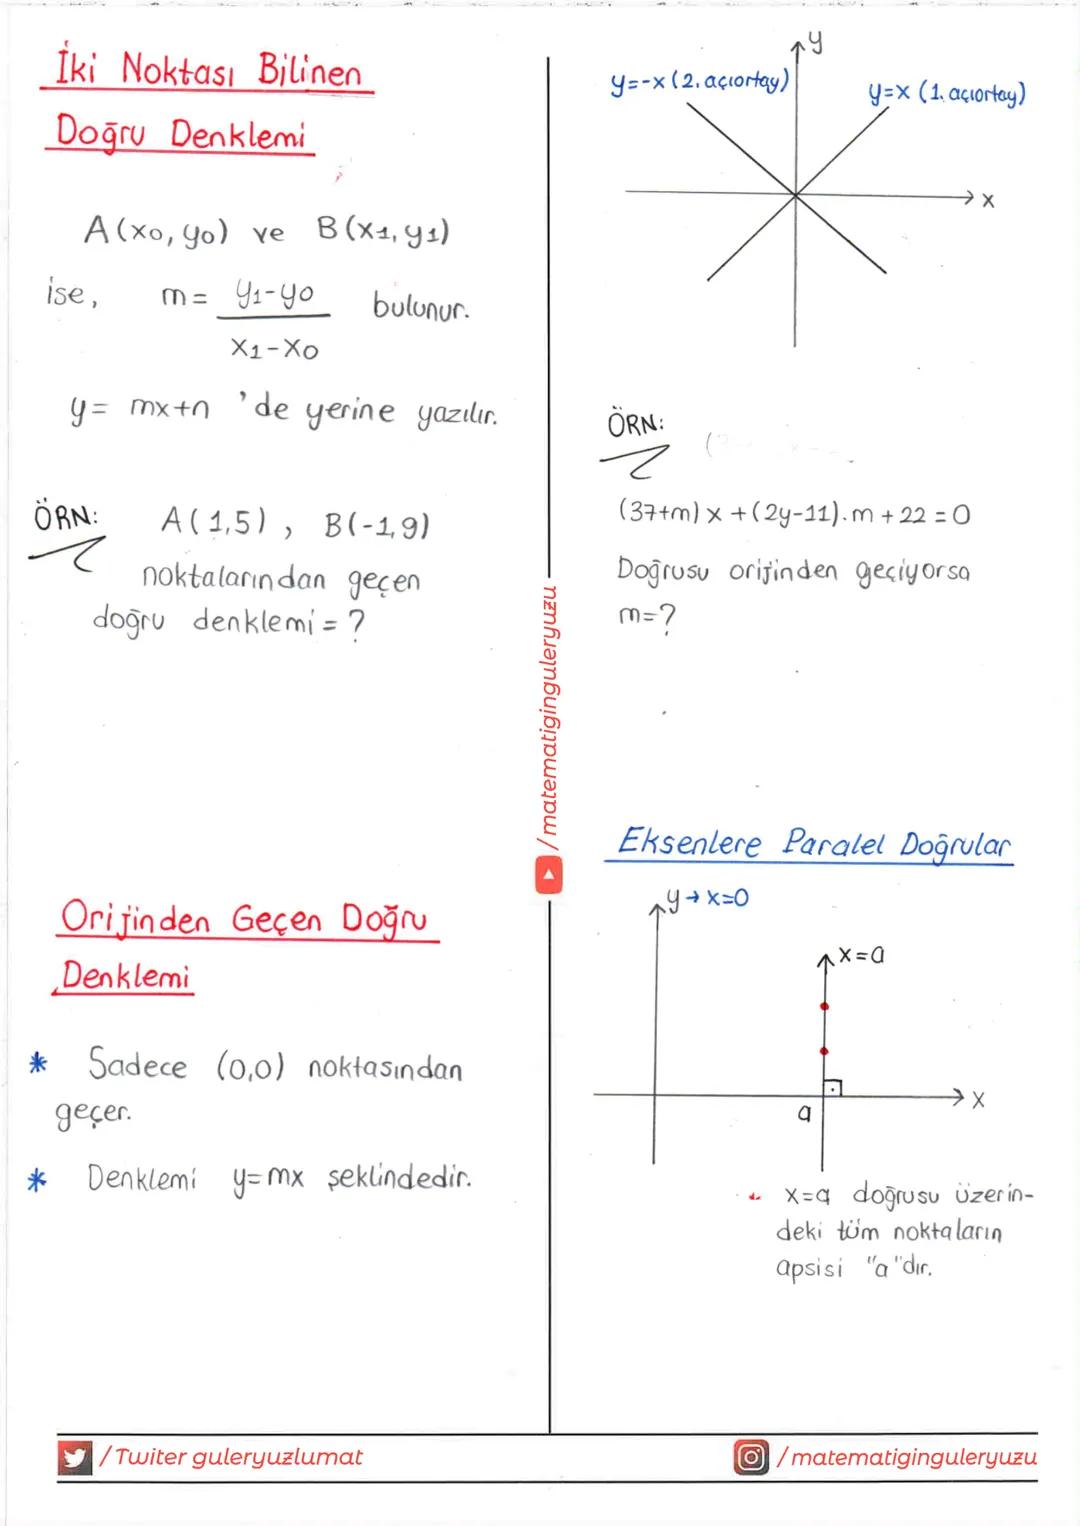 İki Noktası Bilinen
Doğru Denklemi
A(x0, y0) ve B(x1, y1)
ise, m = y1-y0 bulunur.
x1-x0
y= mx+n 'de yerine yazılır.
ÖRN: A(1,5), B(-1,9)
noktalarından geçen
doğru denklemi = ?
Orijinden Geçen Doğru
Denklemi
* Sadece (0,0) noktasından
geçer.
* Denklemi y=mx şeklindedir.
/matematiginguleryuzu
y
y=-x (2. açıortay)
y=x (1. açıortay)
x
ÖRN:
(37+m)x+(2y-11).m+22=0
Doğrusu orijinden geçiyorsa
m=?
Eksenlere Paralel Doğrular
y→x=0
x=a
x
a
x=a doğrusu üzerin-
deki tüm noktaların
apsisi "a"dır.
/Twiter guleryuzlumat
/matematiginguleryuzu